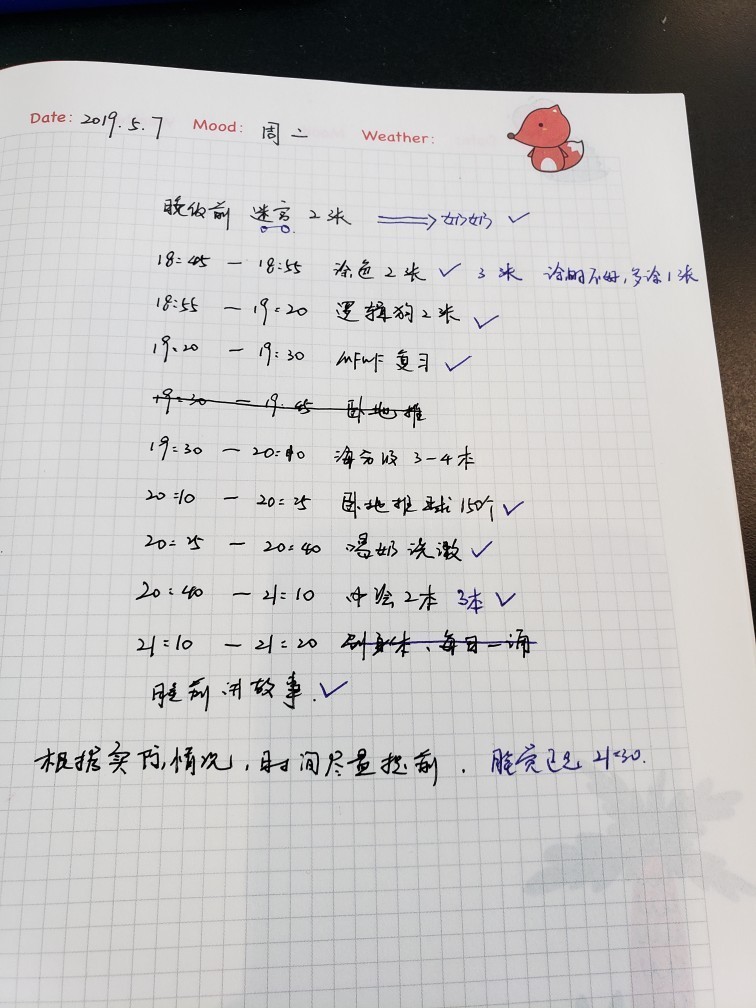 Date: 2019.5.7 Mood: 周二 Weather:
晚饭前 迷宫 2张 ⟹ 奶奶 ✓
18:45 — 18:55 涂色 2张 ✓ 3张 涂的不好,多涂1张
18:55 — 19:20 逻辑狗 2张 ✓
19.20 — 19:30 MFWF 复习 ✓
19:30 — 19.45 卧地推
19:30 — 20:10 海分级 3-4本
20:10 — 20:25 卧地推球 150个 ✓
20:25 — 20:40 喝奶 洗漱 ✓
20:40 — 21:10 中绘 2本 3本 ✓
21:10 — 21:20 、每日一诵
睡前讲故事. ✓
根据实际情况,时间尽量提前. 睡觉已 21:30.